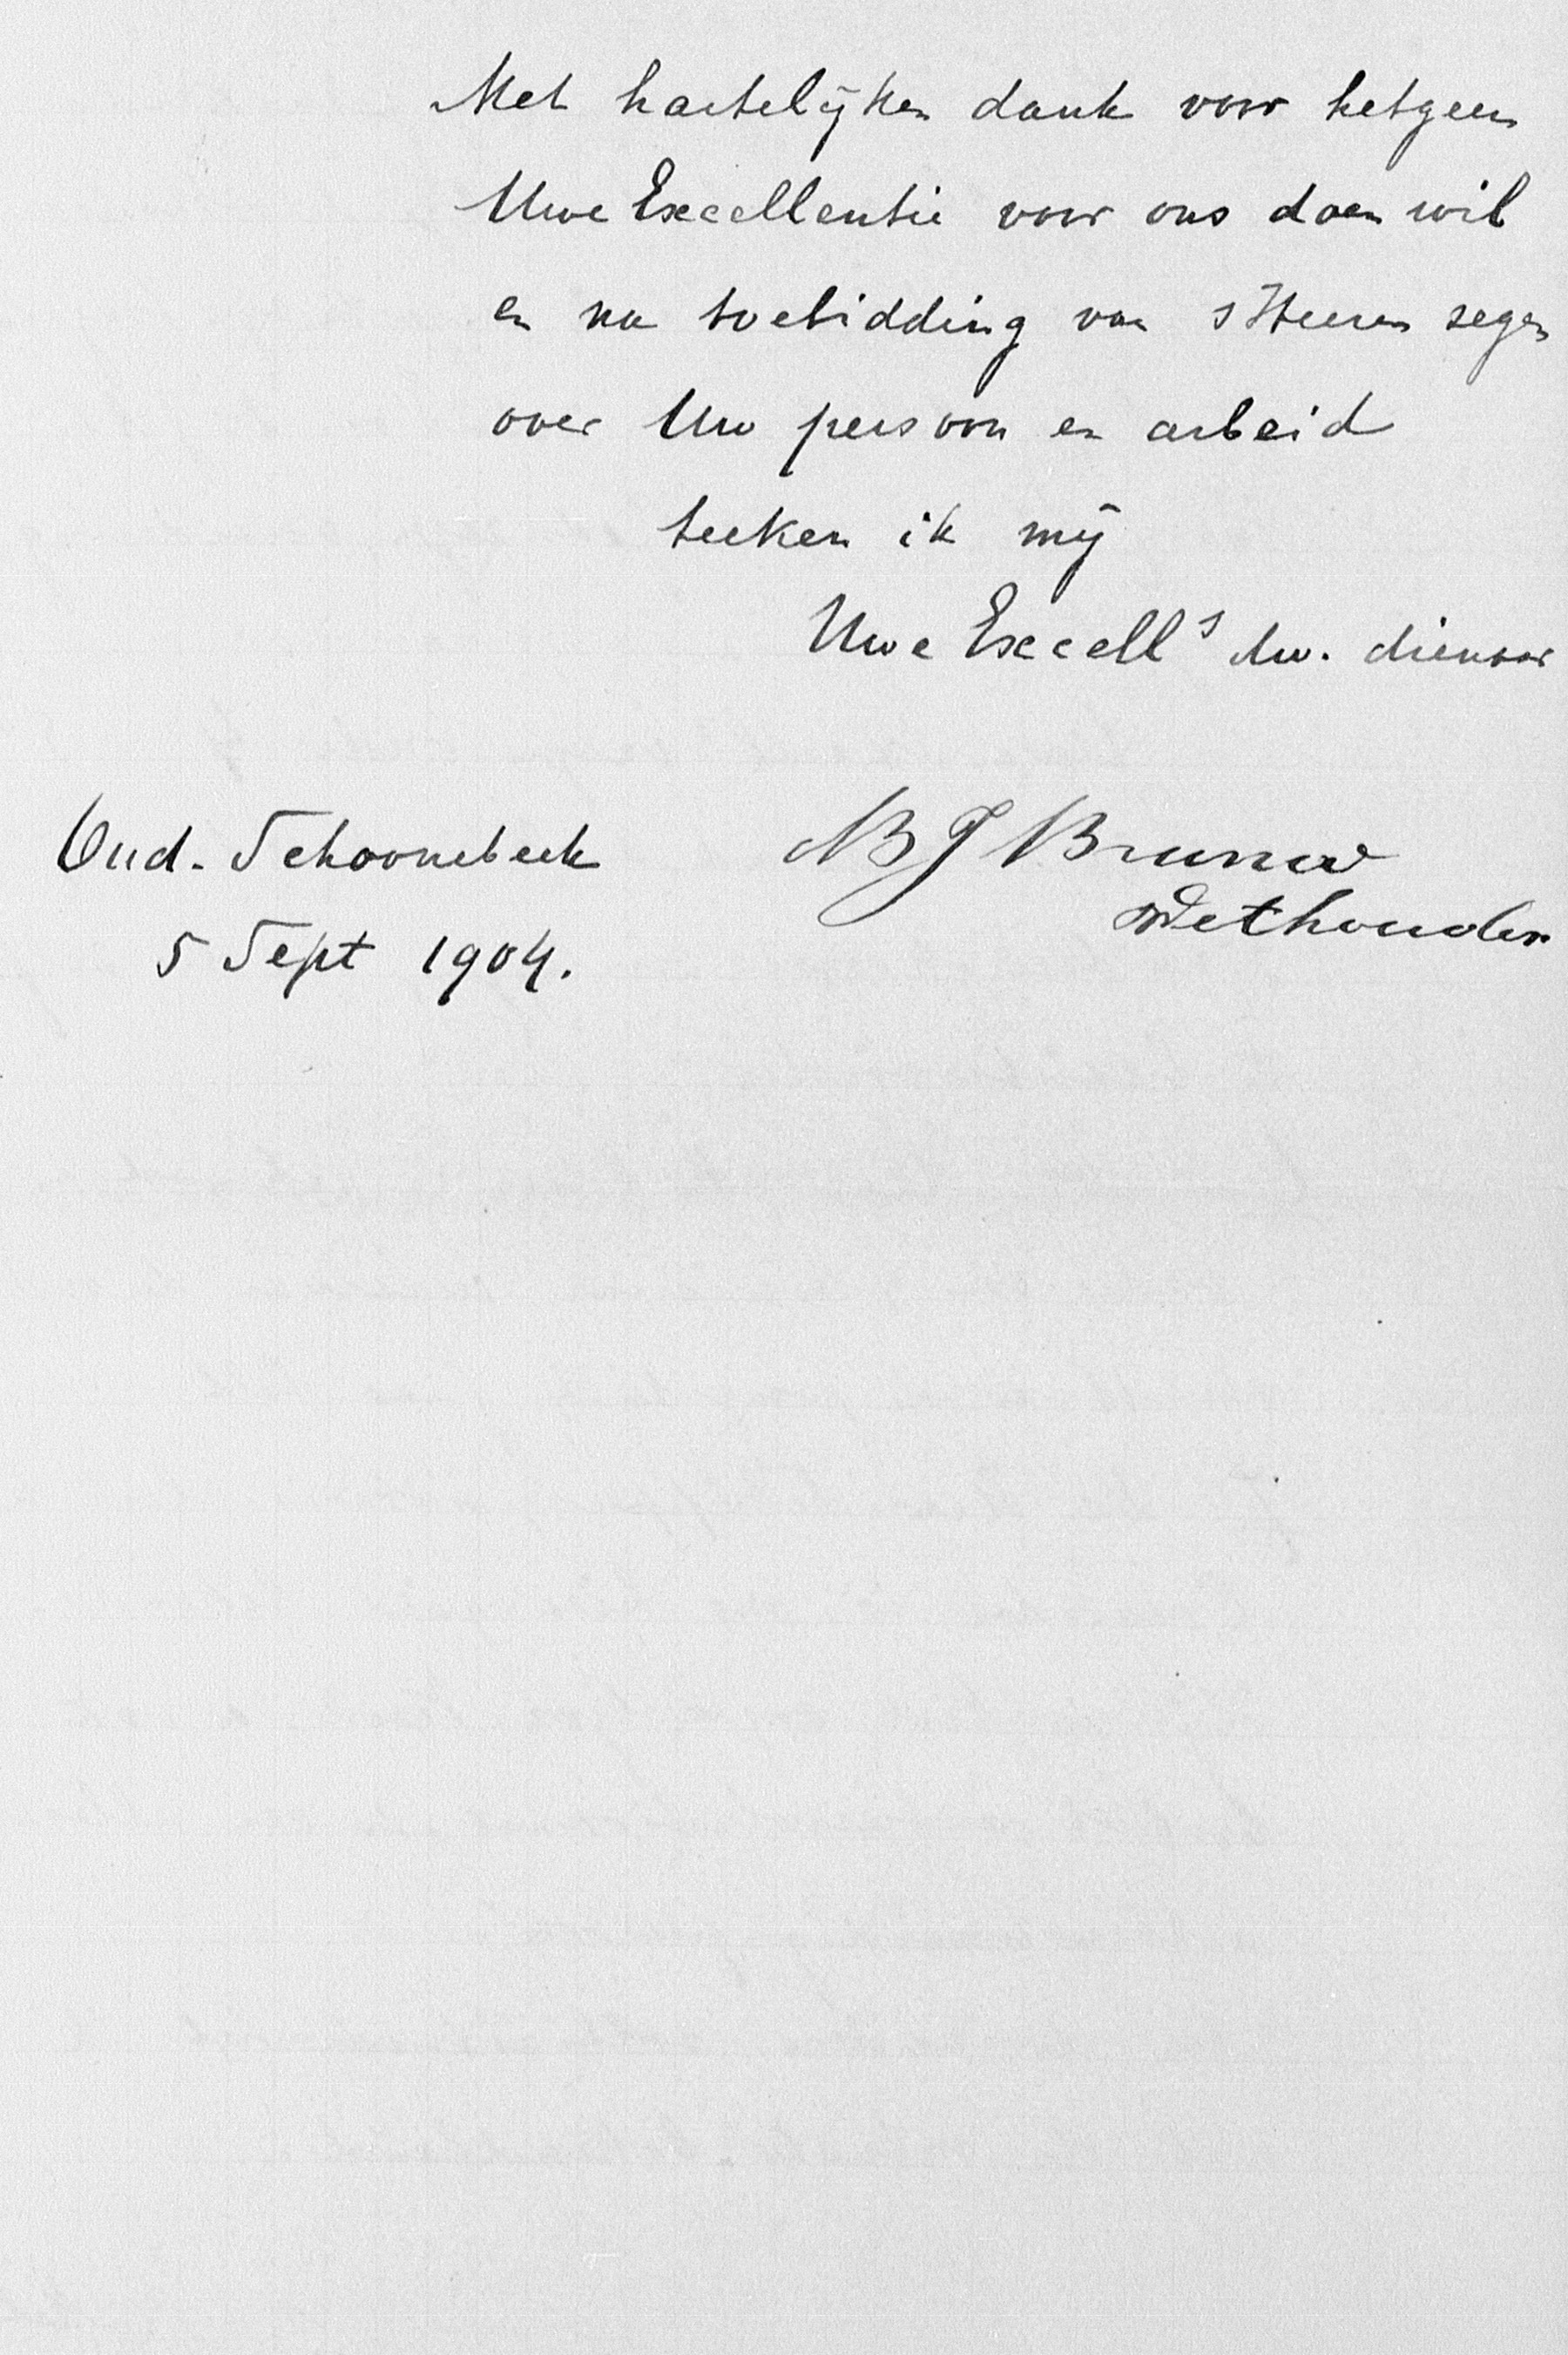 Met hartelijken dank voor hetgeen
Uwe Excellentie voor ons doen wil
en na toebidding van s'Heeren zegen
over Uw persoon en arbeid
teeken ik mij
Uwe Excell^s dw. dienaar
Oud-Schoonebeek
5 Sept 1904.
B J
Wethouder